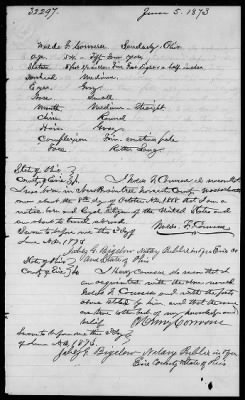 32297. June 5. 1873
Waldo F. Converse Sandusky Ohio
Age. 54 - Fifty Four years
Stature 5 feet
Forehead Medium
Eyes Grey
Nose Small
Mouth Medium - Straight
Chin Round
Hair Gray
Complexion
Face Rather Long
State of Ohio
County of Erie I Waldo F. Converse do
was born in Worcester County Massachusetts
on the 8th day of October A.D. 1818 that I am a
native born and Loyal Citizen of the United States and
am about to travel abroad
Sworn to before me this day Waldo F. Converse
June A.D. 1873
John G. Bigelow Notary Public in & for Erie Co
and State of Ohio
State of Ohio
County of Erie I Henry Converse do swear that I
am acquainted with the above named
Waldo F. Converse and with the facts
above stated by him and that the same
are true to the best of my knowledge and
belief Henry Converse
Sworn to before me this day of
June A.D. 1873.
John G. Bigelow Notary Public in & for
Erie County State of Ohio